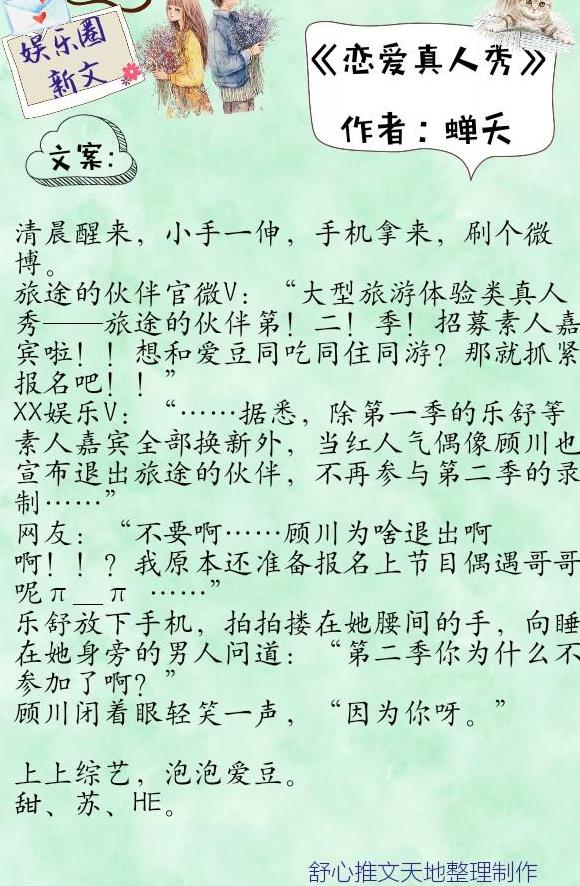 娱乐圈
新文
《恋爱真人秀》
作者：蝉夭
文案：
清晨醒来，小手一伸，手机拿来，刷个微
博。
旅途的伙伴官微V：“大型旅游体验类真人
秀——旅途的伙伴第！二！季！招募素人嘉
宾啦！！想和爱豆同吃同住同游？那就抓紧
报名吧！！”
XX娱乐V：“……据悉，除第一季的乐舒等
素人嘉宾全部换新外，当红人气偶像顾川也
宣布退出旅途的伙伴，不再参与第二季的录
制……”
网友：“不要啊……顾川为啥退出啊
啊！！？我原本还准备报名上节目偶遇哥哥
呢π__π ……”
乐舒放下手机，拍拍搂在她腰间的手，向睡
在她身旁的男人问道：“第二季你为什么不
参加了啊？”
顾川闭着眼轻笑一声，“因为你呀。”
上上综艺，泡泡爱豆。
甜、苏、HE。
舒心推文天地整理制作